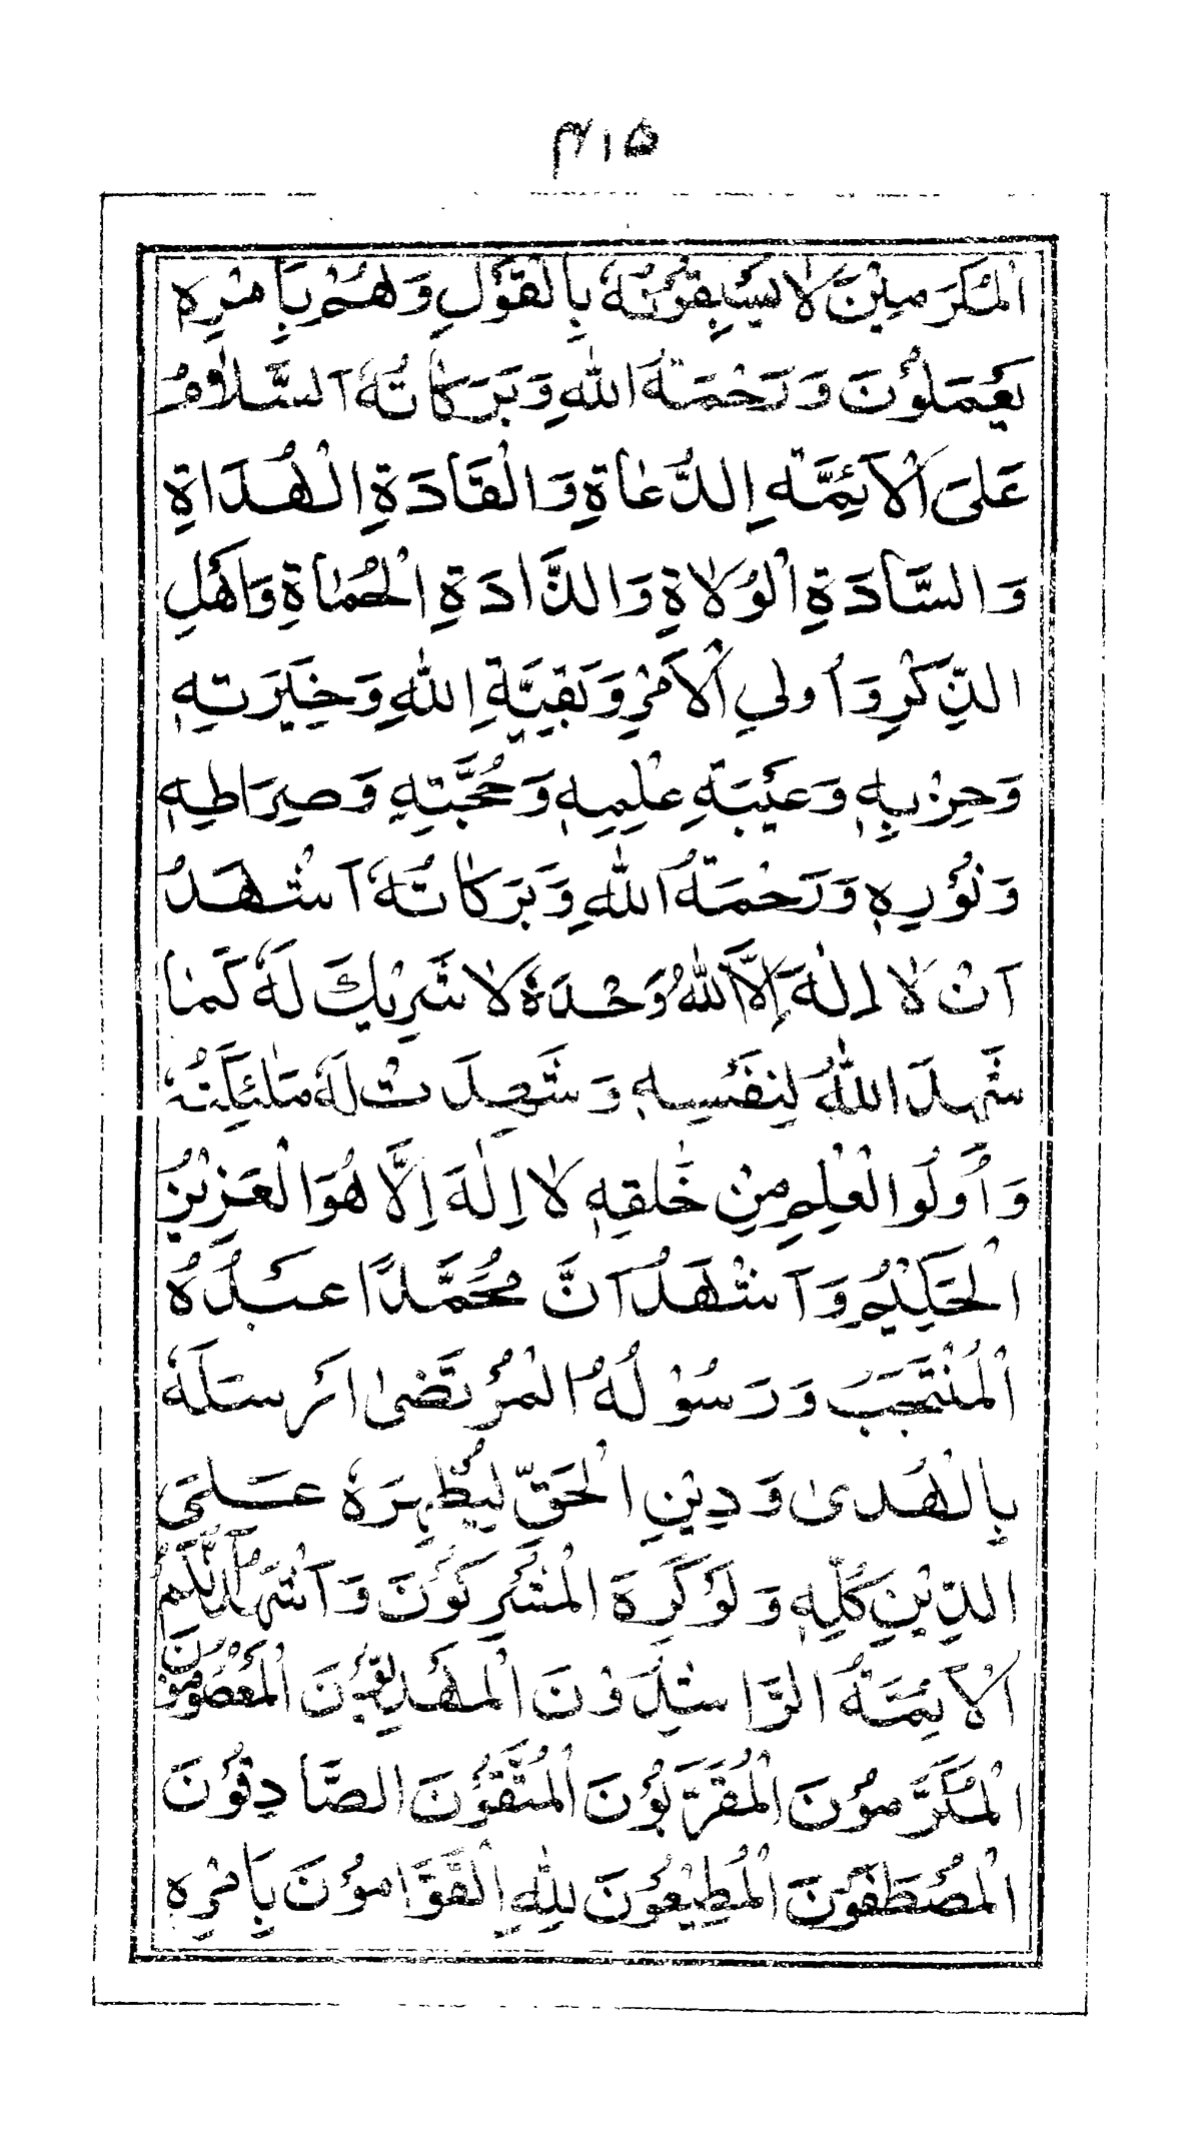 ۳۱۵
الْمُكَرَّمِيْنَ لَا يَسْبِقُوْنَهٗ بِالْقَوْلِ وَهُمْ بِاَمْرِهٖ
يَعْمَلُوْنَ وَرَحْمَةُ اللّٰهِ وَبَرَكَاتُهٗ اَلسَّلَامُ
عَلَى الْاَئِمَّةِ الدُّعَاةِ وَالْقَادَةِ الْهُدَاةِ
وَالسَّادَةِ الْوُلَاةِ وَالذَّادَةِ الْحُمَاةِ وَاَهْلِ
الذِّكْرِ وَاُولِي الْاَمْرِ وَبَقِيَّةِ اللّٰهِ وَخِيَرَتِهٖ
وَحِزْبِهٖ وَعَيْبَةِ عِلْمِهٖ وَحُجَّتِهٖ وَصِرَاطِهٖ
وَنُوْرِهٖ وَرَحْمَةُ اللّٰهِ وَبَرَكَاتُهٗ اَشْهَدُ
اَنْ لَا اِلٰهَ اِلَّا اللّٰهُ وَحْدَهٗ لَا شَرِيْكَ لَهٗ كَمَا
شَهِدَ اللّٰهُ لِنَفْسِهٖ وَشَهِدَتْ لَهٗ مَلٰئِكَتُهٗ
وَاُولُوا الْعِلْمِ مِنْ خَلْقِهٖ لَا اِلٰهَ اِلَّا هُوَ الْعَزِيْزُ
الْحَكِيْمُ وَاَشْهَدُ اَنَّ مُحَمَّدًا عَبْدُهُ
الْمُنْتَجَبُ وَرَسُوْلُهُ الْمُرْتَضٰى اَرْسَلَهٗ
بِالْهُدٰى وَدِيْنِ الْحَقِّ لِيُظْهِرَهٗ عَلَى
الدِّيْنِ كُلِّهٖ وَلَوْ كَرِهَ الْمُشْرِكُوْنَ وَاَشْهَدُ اَنَّكُمُ
الْاَئِمَّةُ الرَّاشِدُوْنَ الْمَهْدِيُّوْنَ الْمَعْصُوْمُوْنَ
الْمُكَرَّمُوْنَ الْمُقَرَّبُوْنَ الْمُتَّقُوْنَ الصَّادِقُوْنَ
الْمُصْطَفَوْنَ الْمُطِيْعُوْنَ لِلّٰهِ الْقَوَّامُوْنَ بِاَمْرِهٖ